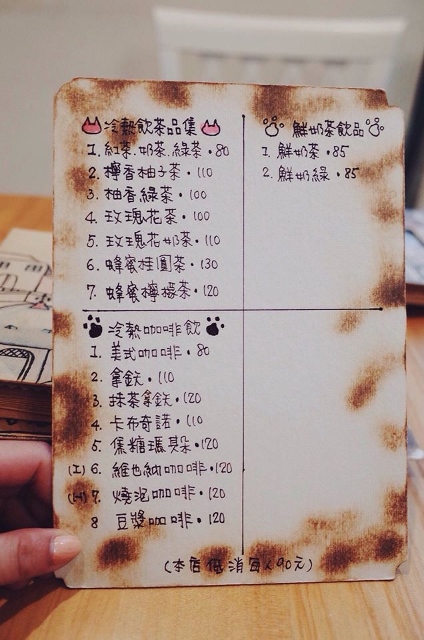 冷熱飲茶品集
1. 紅茶.奶茶.綠茶・80
2. 檸香柚子茶・110
3. 柚香綠茶・100
4. 玫瑰花茶・100
5. 玫瑰花奶茶・110
6. 蜂蜜桂圓茶・130
7. 蜂蜜檸檬茶・120
鮮奶茶飲品
1. 鮮奶茶・85
2. 鮮奶綠・85
冷熱咖啡飲
1. 美式咖啡・80
2. 拿鉄・110
3. 抹茶拿鉄・120
4. 卡布奇諾・110
5. 焦糖瑪其朵・120
(I) 6. 維也納咖啡・120
(H) 7. 燒泡咖啡・120
8 豆漿咖啡・120
(本店低消每人90元)